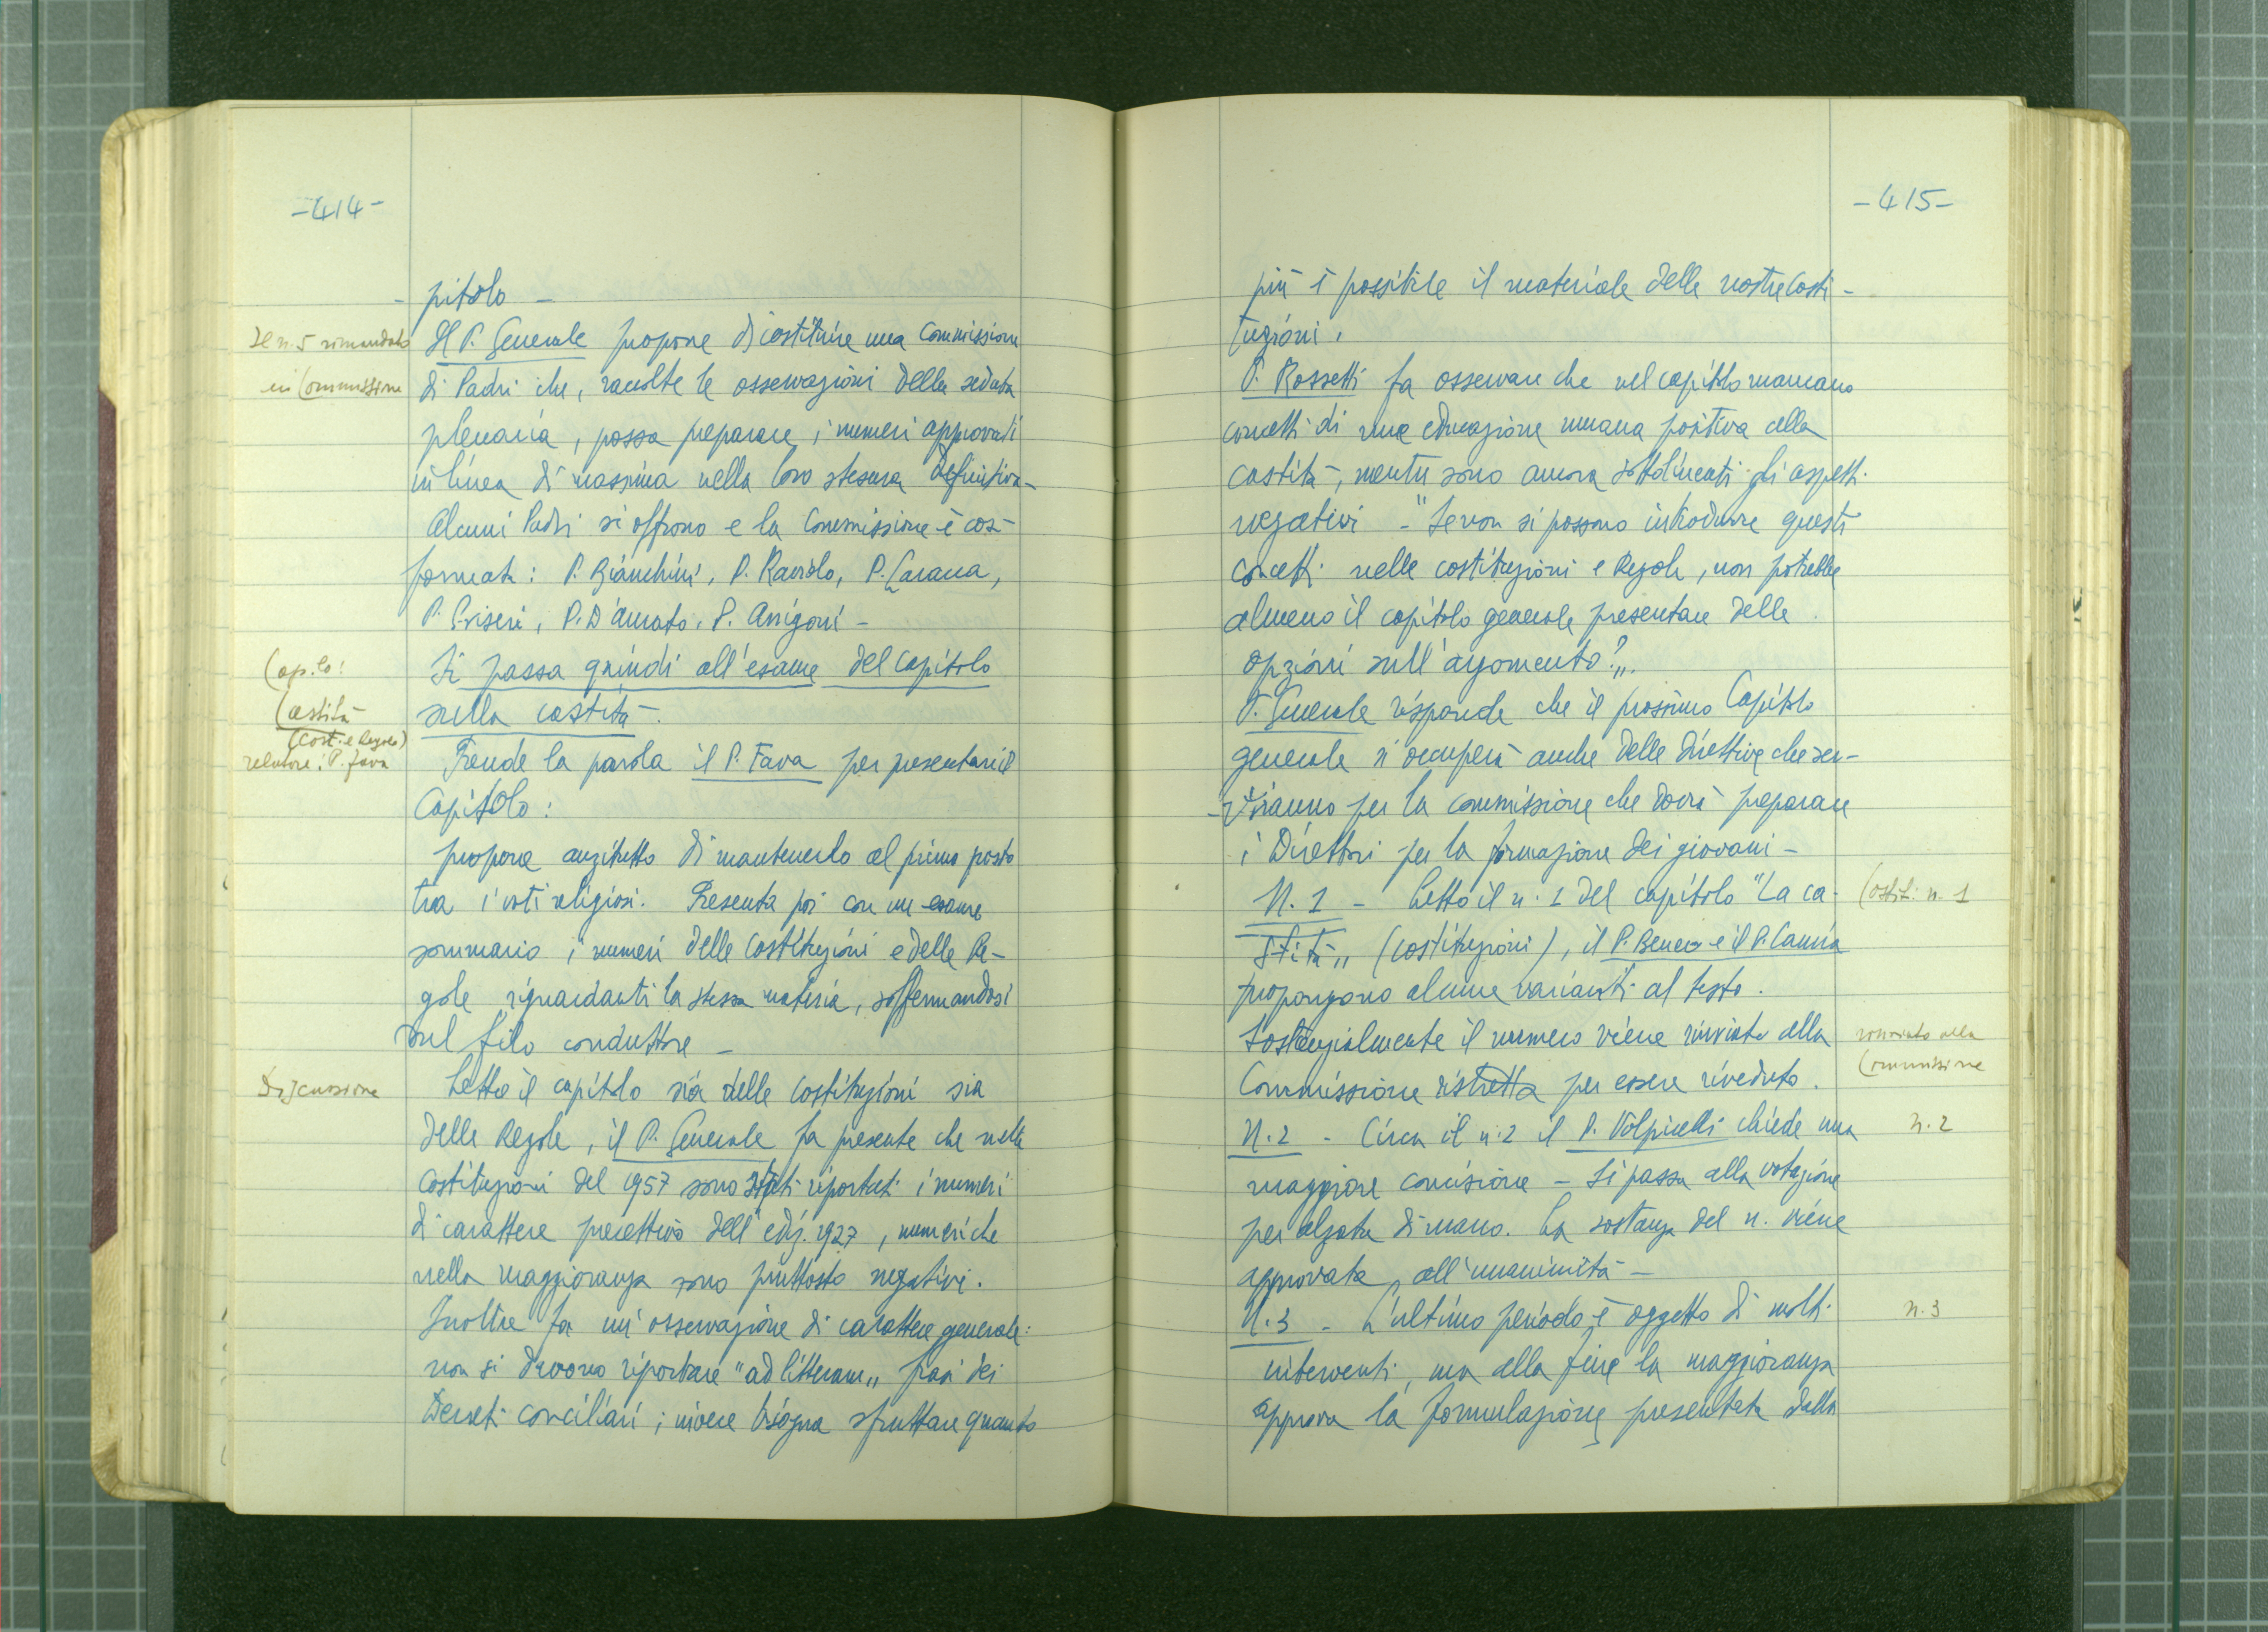 -414-
- pitolo -
Il n. 5 rimandato
in Commissione
Il P. Generale propone di costituire una Commissione
di Padri che, raccolte le osservazioni della seduta
plenaria, possa preparare i numeri approvati
in linea di massima nella loro stesura definitiva-
Alcuni Padri si offrono e la Commissione è così
formata: P. Bianchini, P. Raviolo, P.
P. Griseri, P. D'Amato, P. Arrigoni -
Cap.lo:
Castità
(Cost. e Regole)
relatore: P. Fava
Si passa quindi all'esame del capitolo
sulla castità.
Prende la parola il P. Fava per presentare il
Capitolo:
propone anzitutto di mantenerlo al primo posto
tra i voti religiosi. Presenta poi con un esame
sommario i numeri delle Costituzioni e delle Re-
gole riguardanti la stessa materia, soffermandosi
sul filo conduttore -
Discussione
Letto il capitolo sia delle Costituzioni sia
delle Regole, il P. Generale fa presente che nelle
Costituzioni del 1957 sono stati riportati i numeri
di carattere precettivo dell'ediz. 1927, numeri che
nella maggioranza sono piuttosto negativi.
Inoltre fa un'osservazione di carattere generale:
non si devono riportare "ad litteram„ frasi dei
Decreti conciliari; invece bisogna sfruttare quanto
-415-
più è possibile il materiale delle nostre Costi-
tuzioni.
P. Rossetti fa osservare che nel capitolo mancano
concetti di una educazione umana positiva alla
castità, mentre sono ancora sottolineati gli aspetti
negativi - "Se non si possono introdurre questi
concetti nelle costituzioni e Regole, non potrebbe
almeno il capitolo generale presentare delle
opzioni sull'argomento?„.
P. Generale risponde che il prossimo Capitolo
generale si occuperà anche delle direttive che ser-
-viranno per la commissione che dovrà preparare
i Direttori per la formazione dei giovani -
N. 1 - Letto il n. 1 del capitolo "La ca-
stità„ (costituzioni), il P. Beneo e il P. Cannia
propongono alcune varianti al testo.
Costit. n. 1
Sostanzialmente il numero viene rinviato alla
Commissione ristretta per essere riveduto.
rinviato alla
Commissione
N. 2 - Circa il n. 2 il P. Volpicelli chiede una
maggiore concisione - Si passa alla votazione
per alzata di mano. La sostanza del n. viene
approvata all'unanimità -
n. 2
N. 3 - L'ultimo periodo è oggetto di molti
interventi, ma alla fine la maggioranza
approva la formulazione presentata dalla
n. 3